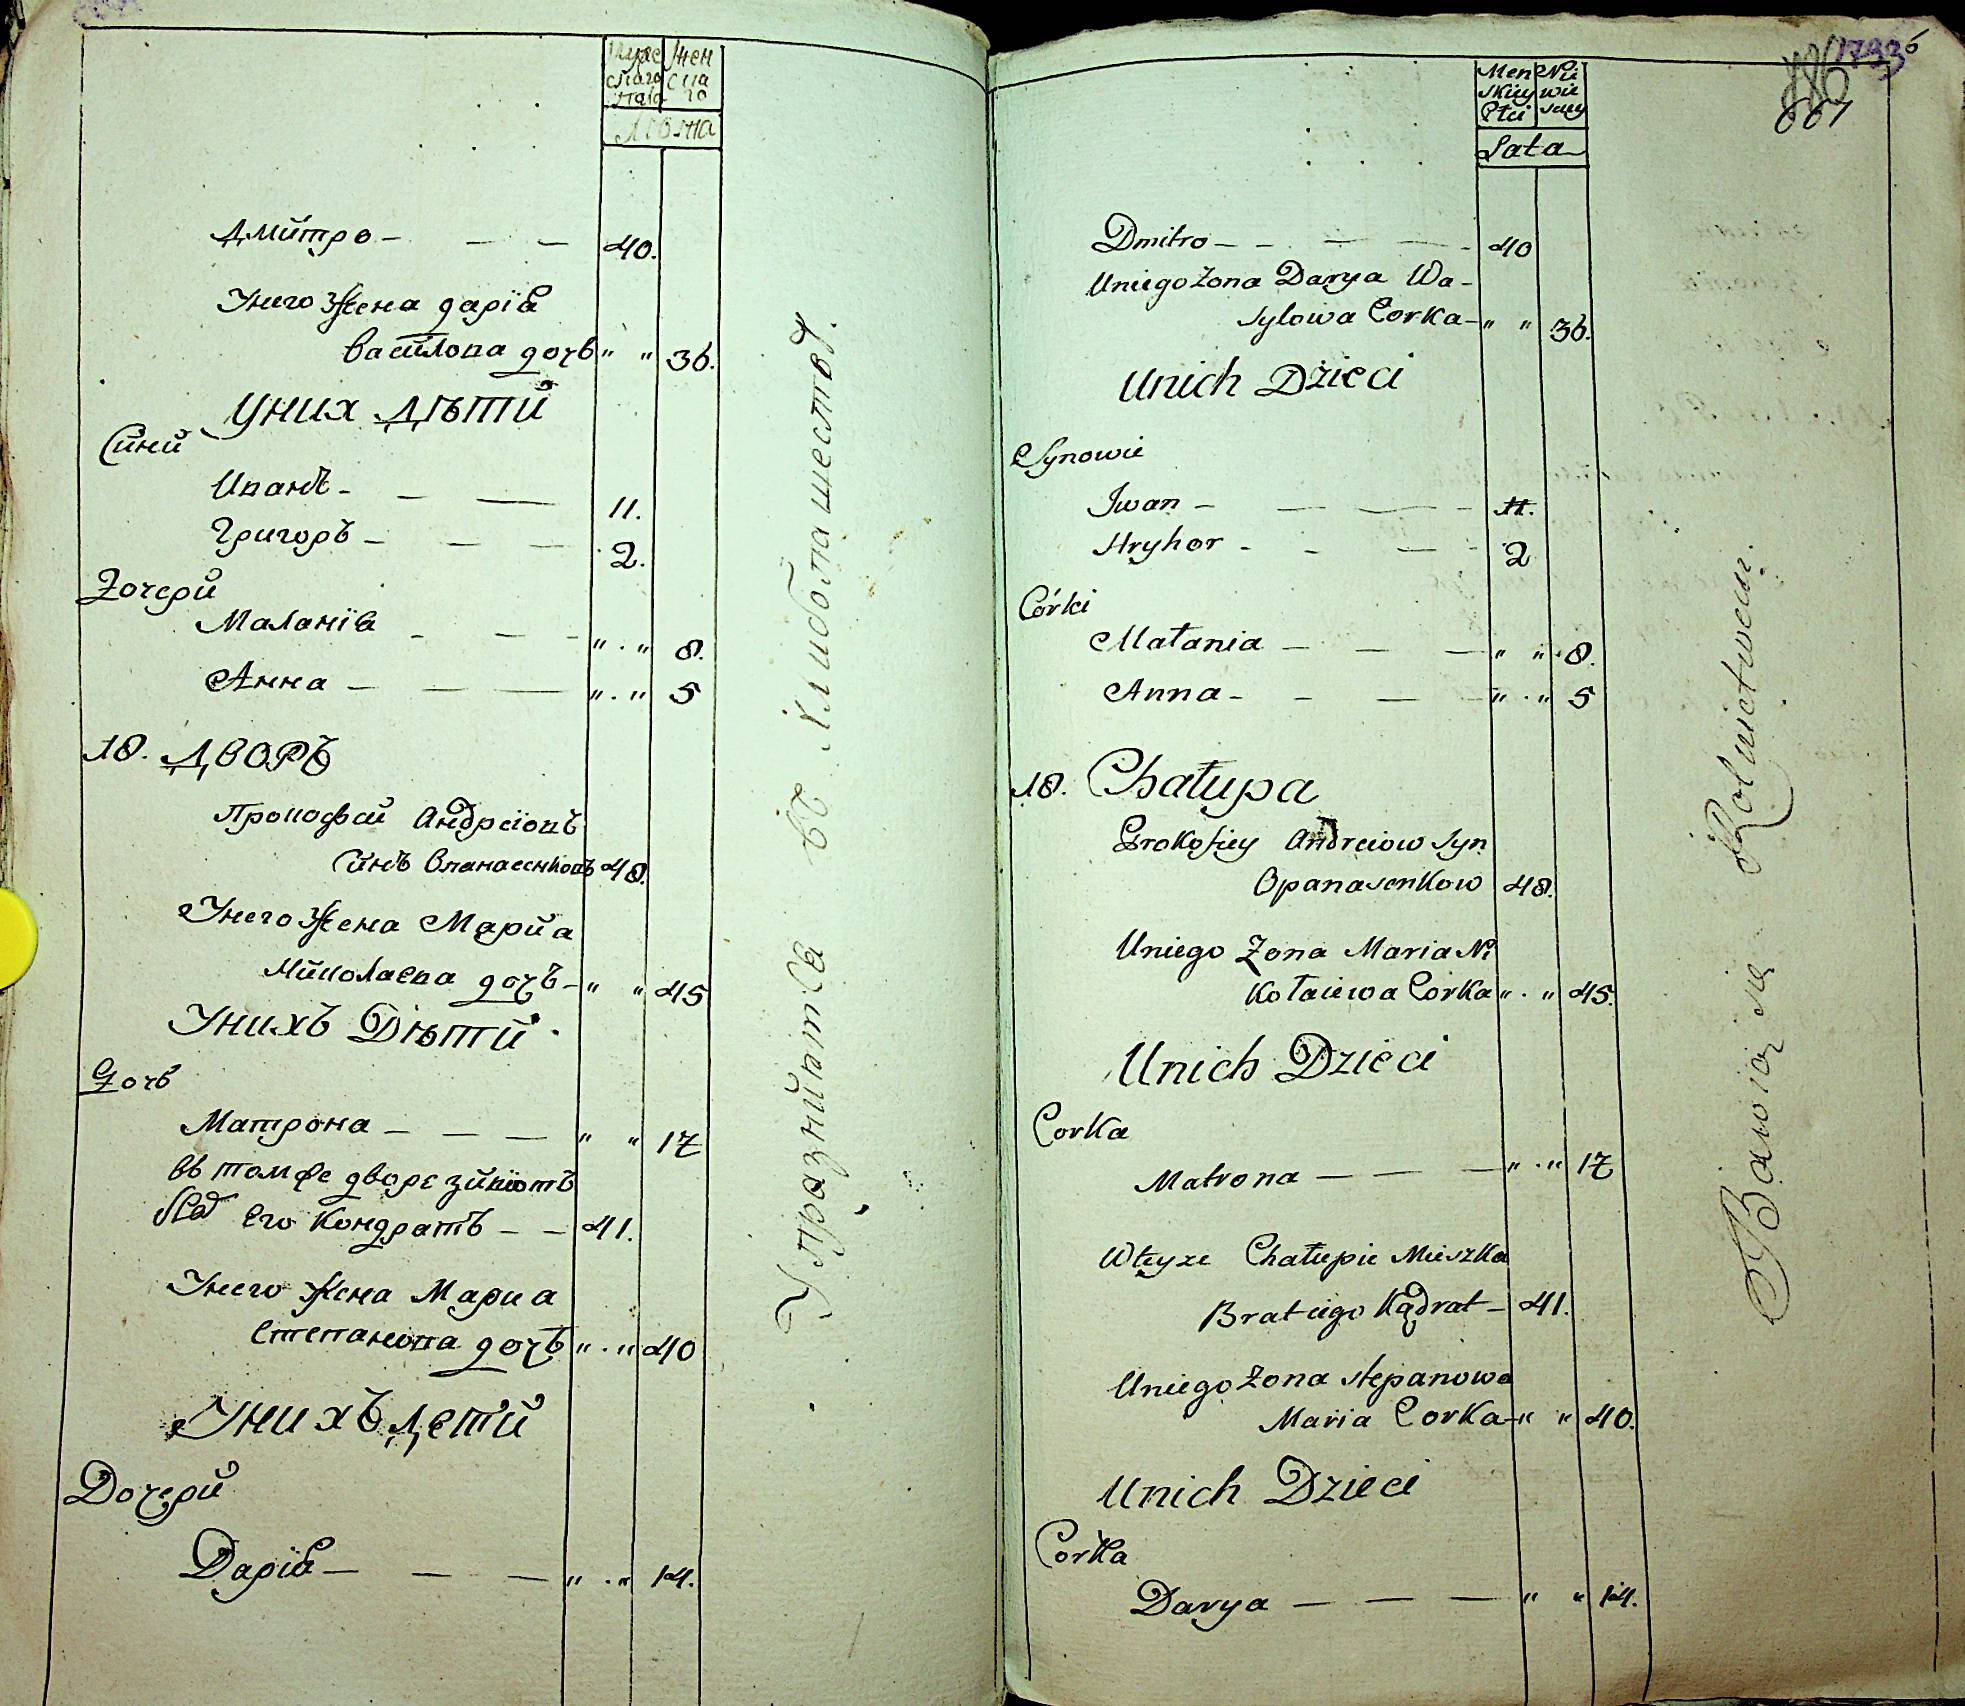 Мужеска пола
Женска го
Лѣта
Дмитро — — — 40.
Унего Жена дарїа
василова дочъ " " 36.
Уних дѣти
Сини
Иванъ — — — 11.
Григоръ — — — 2.
Дочери
Маланїа — — — " " 8.
Анна — — — " " 5
18. дворъ
Прокофей Андреіовъ
Синъ Опанасенковъ 48.
Унего Жена Мариа
Миколаева дочъ — " " 45
Унихъ Дѣти
Дочъ
Матрона — — — " " 17
въ томже дворе
Его Кондратъ — — 41.
Унего Жена Мариа
Степанова дочъ " " 40
Унихъ дети
Дочери
Дарїа — — — " " 14.
Упразнйятся в Хлибопашество.
1793
667
Men skiey Płci
Niewie sciey
Lata
Dmitro — — — 40
Uniego żona Darya Wa-
sylowa Corka — " " 36.
Unich Dzieci
Synowie
Iwan — — — 11.
Hryhor — — — 2
Córki
Małania — — — " " 8.
Anna — — — " " 5
18. Chałupa
Prokofiey Andreiow syn
Opanasenkow 48.
Uniego Zona Maria Ni
kołaiewa Corka " " 45.
Unich Dzieci
Corka
Matrona — — — " " 17
Wteyze Chałupie Mieszka
Brat iego Kądrat — 41.
Uniego żona stepanowa
Maria Corka — " " 40.
Unich Dzieci
Corka
Darya — — — " " 14.
Bawią się Rolnictwem.